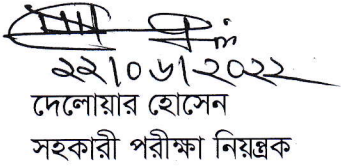 ২২/০৬/২০২২
দেলোয়ার হোসেন
সহকারী পরীক্ষা নিয়ন্ত্রক